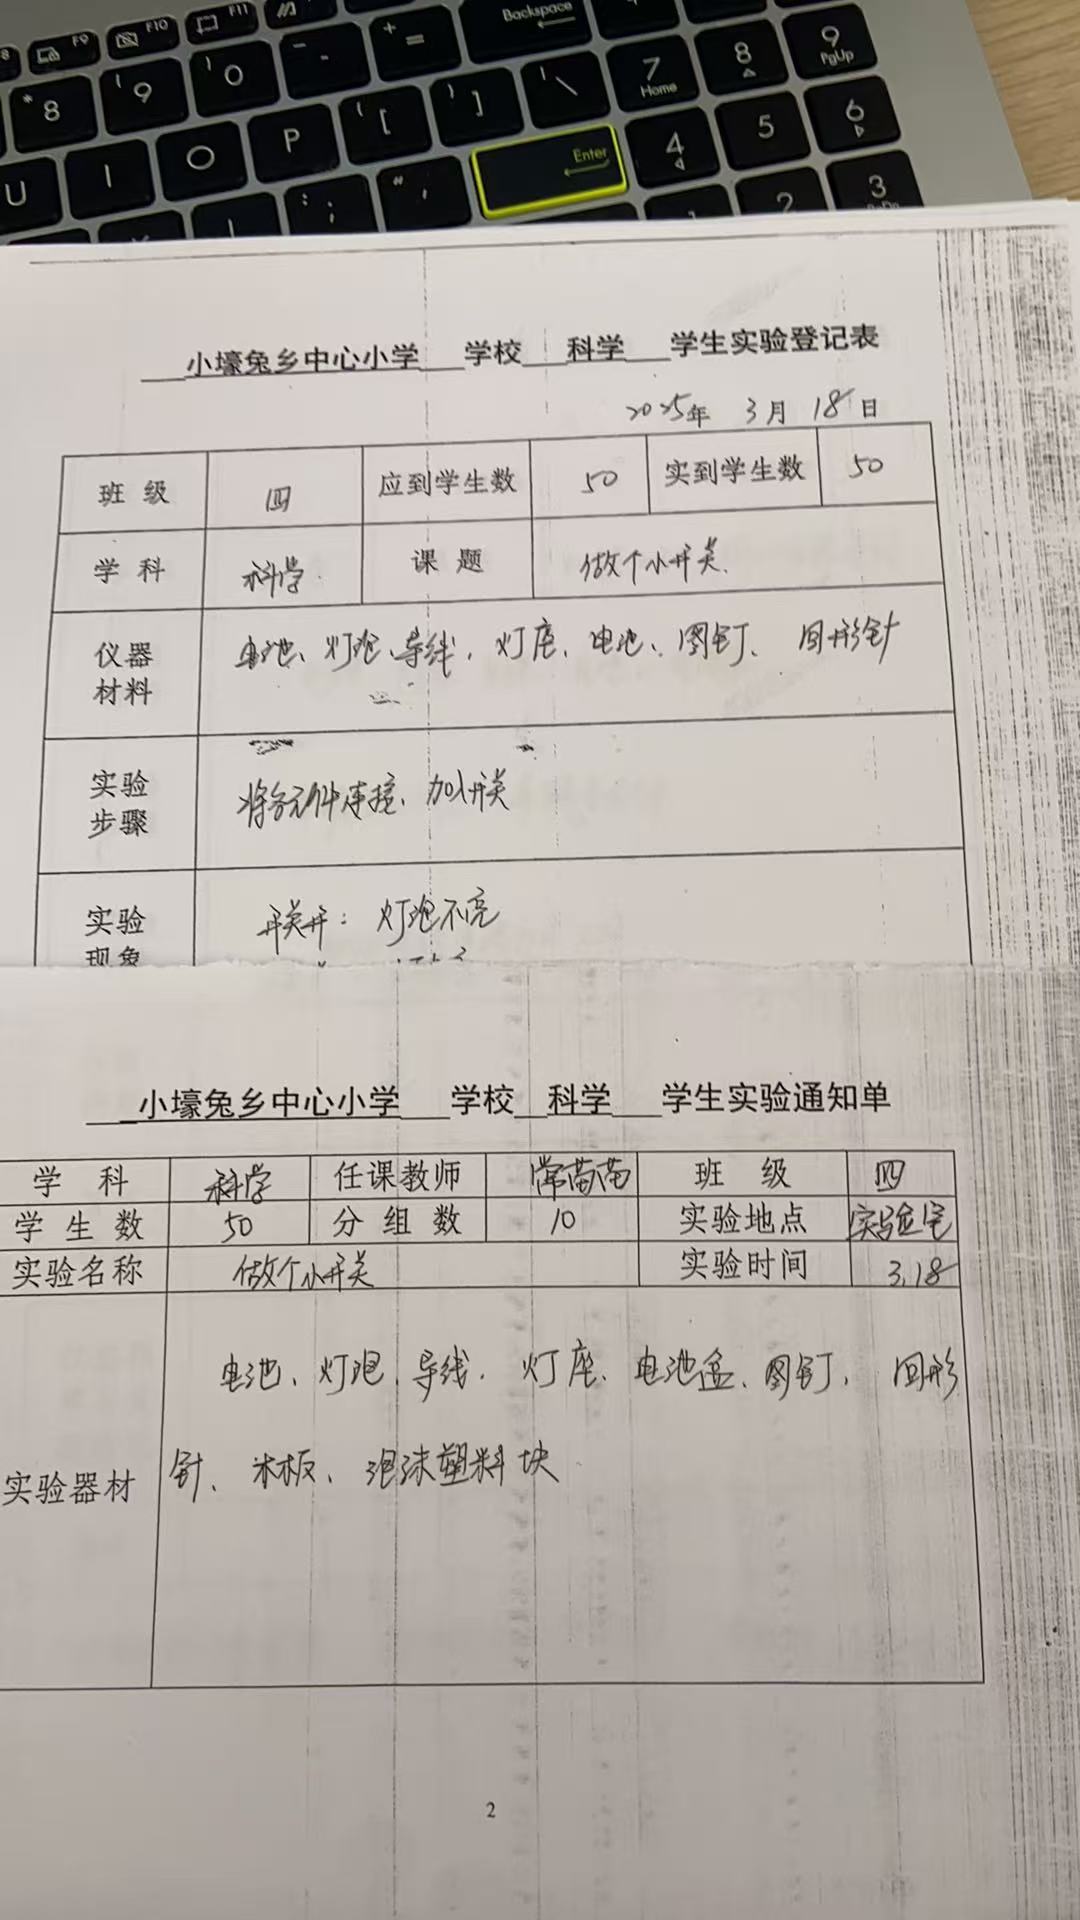 F9 F10 F11 Backspace
* 8 ( 9 ) 0 - + = 7 Home 8 9 PgUp
U I O P { [ } ] | \ 4 5 6
: ; " ' Enter 1 2 3 PgDn
小壕兔乡中心小学 学校 科学 学生实验登记表
2025年 3月 18日
班 级 四 应到学生数 50 实到学生数 50
学 科 科学 课 题 做个小开关
仪器材料 电池、灯泡、导线、灯座、电池、图钉、回形针
实验步骤 将各元件连接、加入开关
实验现象 开关开:灯泡不亮
小壕兔乡中心小学 学校 科学 学生实验通知单
学 科 科学 任课教师 常苗苗 班 级 四
学 生 数 50 分 组 数 10 实验地点 实验室
实验名称 做个小开关 实验时间 3.18
电池、灯泡、导线、灯座、电池盒、图钉、回形
实验器材 针、木板、泡沫塑料块
2